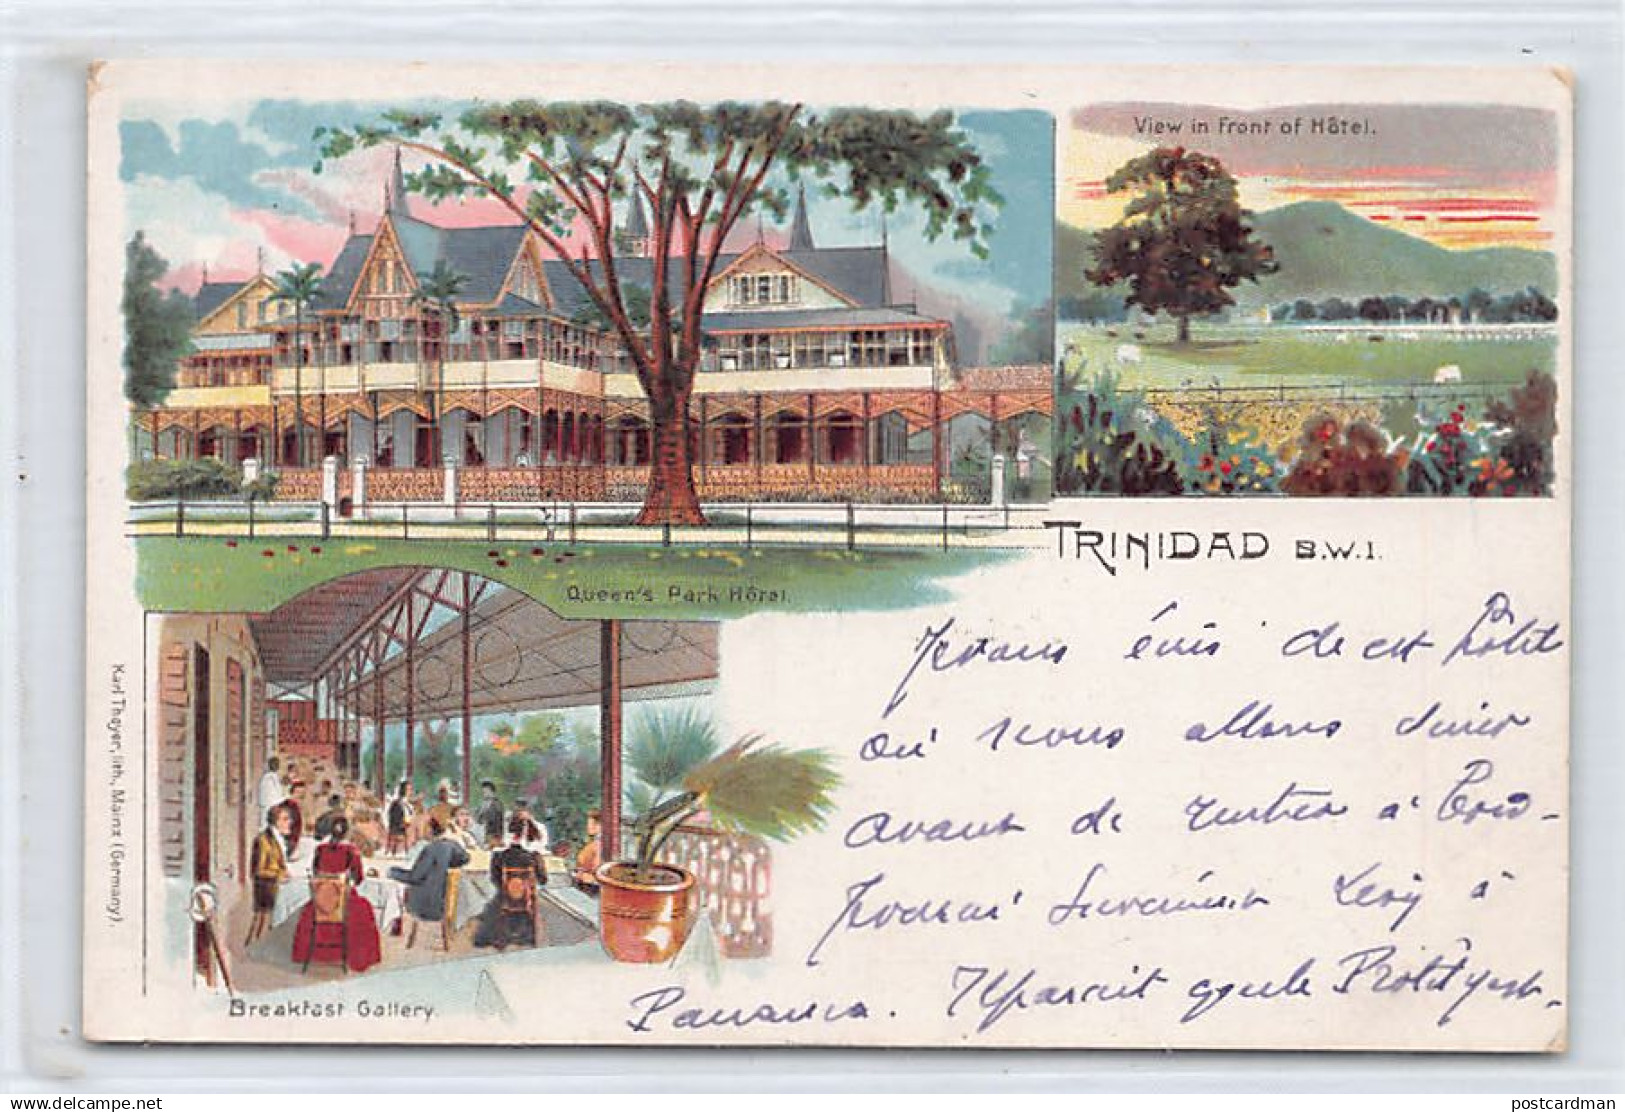 View in Front of Hôtel.
TRINIDAD B.W.I.
Queen's Park Hôtel.
Je vous écris de cet hôtel
où nous allons dîner
avant de rentrer à bord
à
Panama. Il paraît que le
Breakfast Gallery.
Karl Theyer, lith., Mainz (Germany).
delcampe.net
postcardman